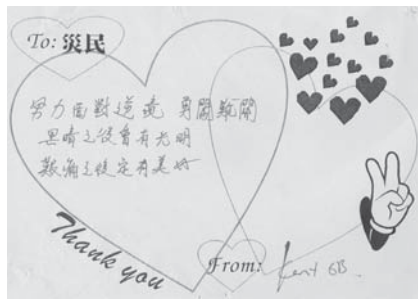 To: 災民
努力面對逆境 勇闖難關
黑暗之後會有光明
艱痛之後定有美好
Thank you
From: Kent 6B